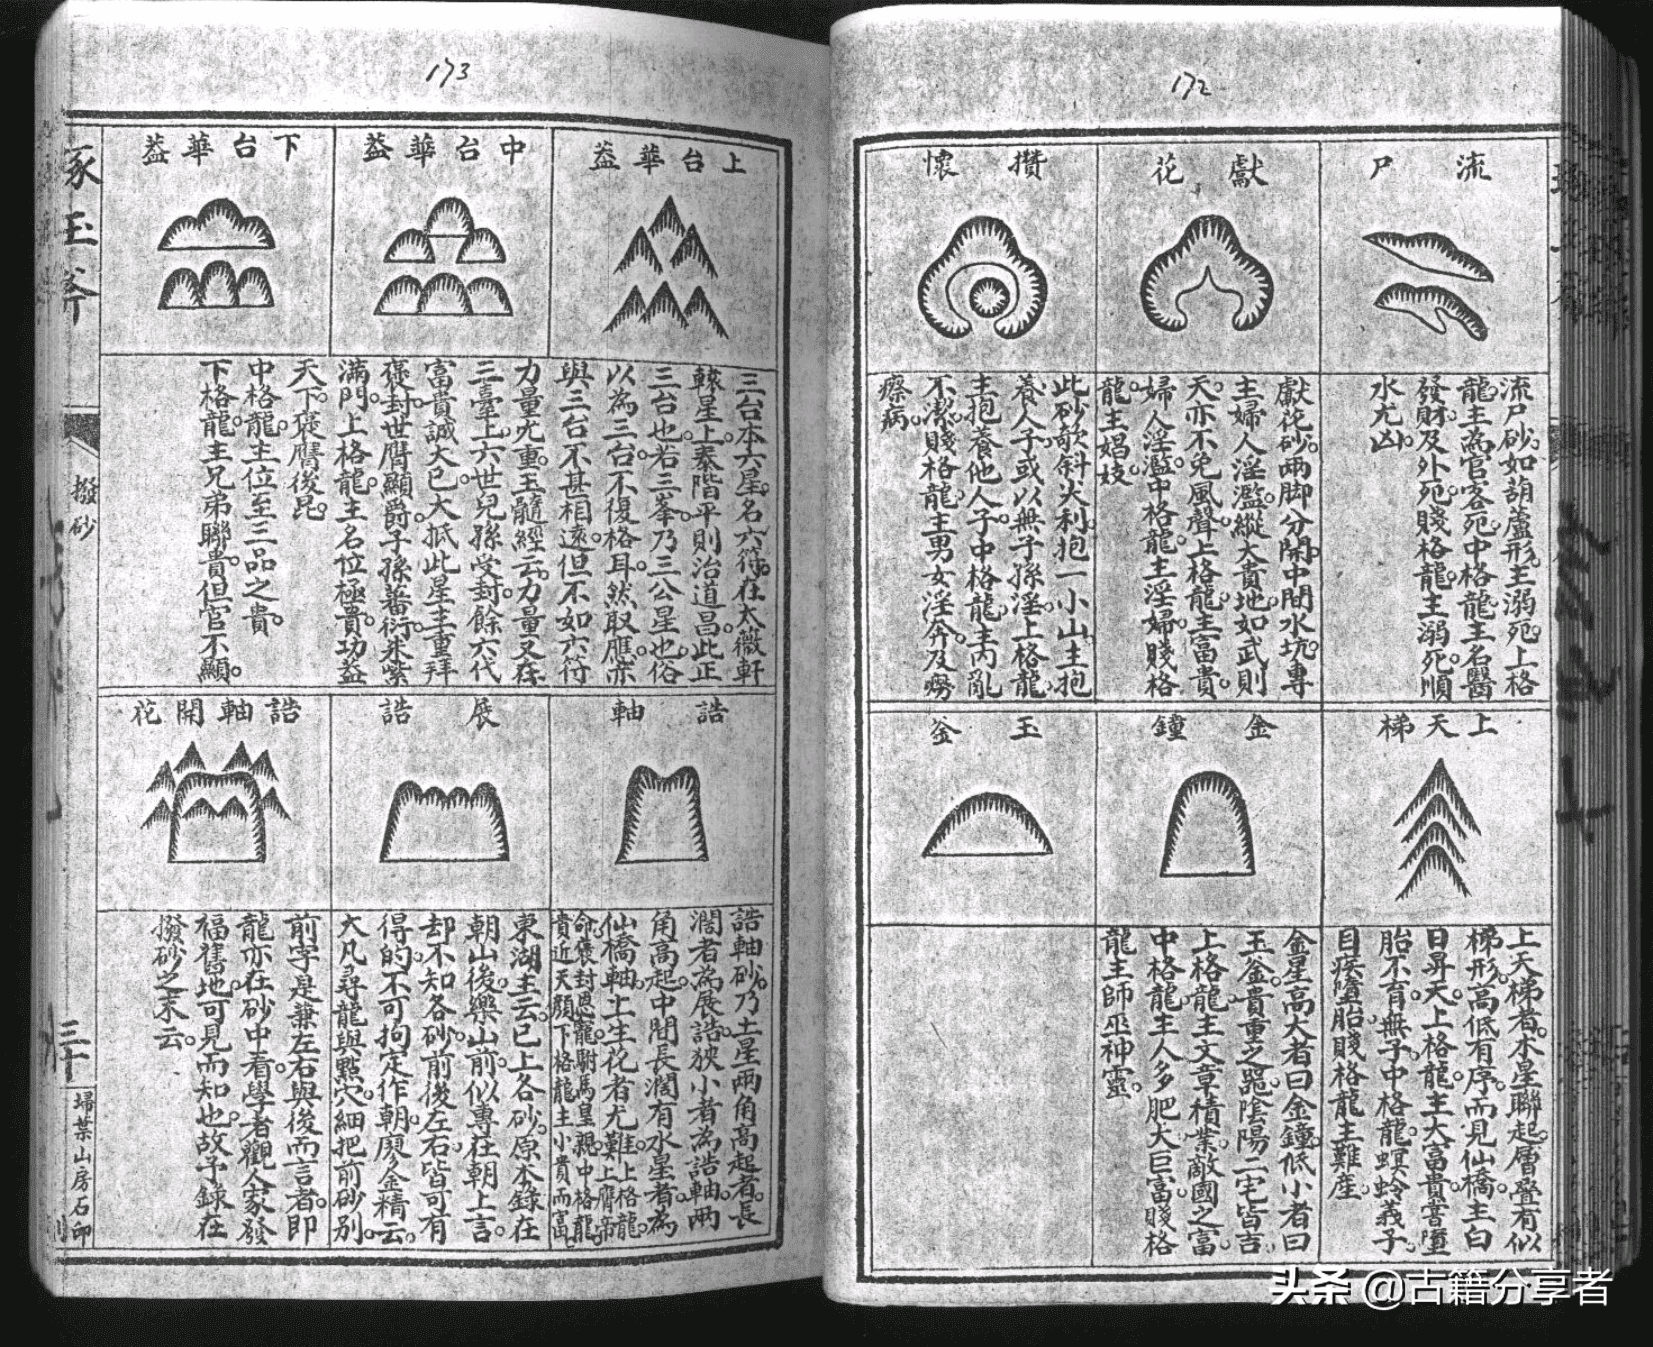 172
流尸
流尸砂如葫蘆形主溺死上格
龍主為官客死中格龍主名醫
發財及外死賤格龍主溺死順
水尤凶
獻花
獻花砂兩脚分開中間水坑專
主婦人淫濫縱大貴地如武則
天亦不免風聲上格龍主富貴
婦人淫濫中格龍主淫婦賤格
龍主娼妓
攢懷
此砂欹斜尖利抱一小山主抱
養人子或以無子孫淫上格龍
主抱養他人子中格龍主內亂
不潔賤格龍主男女淫奔及癆
瘵病
上天梯
上天梯者木星聯起層疊有似
梯形高低有序而見仙橋主白
日昇天上格龍主大富貴嘗墮
胎不育無子中格龍螟蛉義子
目疾墮胎賤格龍主難產
金鐘
金星高大者曰金鐘低小者曰
玉釜貴重之器陰陽二宅皆吉
上格龍主文章積業敵國之富
中格龍主人多肥大巨富賤格
龍主師巫神靈
玉釜
173
上台華蓋
中台華蓋
下台華蓋
三台本六星名六符在太微軒
轅星上泰階平則治道昌此正
三台也若三峯乃三公星也俗
以為三台不復格耳然取應亦
與三台不甚相遠但不如六符
力量尤重玉髓經云力量又在
三臺上六世兒孫受封餘六代
富貴誠大已大抵此星主重拜
褒封世膺顯爵子孫蕃衍朱紫
滿門上格龍主名位極貴功蓋
天下褒膺後昆
中格龍主位至三品之貴
下格龍主兄弟聯貴但官不顯
誥軸
誥軸砂乃土星兩角高起者長
濶者為展誥狹小者為誥軸兩
角高起中間長濶有水星者為
仙橋軸上生花者尤難上格龍上膺帝
命褒封恩寵駙馬皇親中格龍
貴近天顏下格龍主小貴而富
展誥
東湖主云已上各砂原本錄在
朝山後樂山前似專在朝上言
却不知各砂前後左右皆可有
得的不可拘定作朝廖金精云
大凡尋龍與點穴細把前砂別
誥軸開花
前字是兼左右與後而言者即
龍亦在砂中看學者觀人家發
福舊地可見而知也故予錄在
撥砂之末云
琢玉斧
撥砂
三十
埽葉山房石印
头条 @古籍分享者